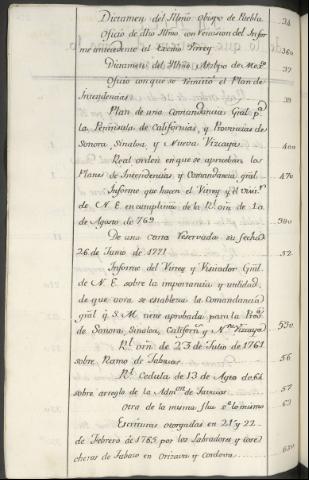 Dictamen del Illmo. obispo de Puebla. 34
Oficio de dho Illmo con remision del Infor
me antecedente al Exmo. Virrey 36
Dictamen del Illmo. Arzbpo de Mexco. 37
Oficio con que se remitió el Plan de
Intendencias 39
Plan de una Comandancia Gral pa.
la Península de Californias, y Provincias de
Sonora, Sinaloa, y Nueva Vizcaya 40
Real orden en que se aprueban los
Planes de Intendencias, y Comandancia gral. 47
Informe que hacen el Virrey y el visitr.
de N. E. en cumplimto. de la Rl. orn. de 10
de Agosto de 769 50
De una carta reservada su fecha
26 de Junio de 1771 52
Informe del Virrey y Visitador Gral.
de N. E. sobre la importancia y utilidad
de que aora se establezca la Comandancia
gral q. S. M. tiene aprobada para las Provs.
de Sonora, Sinaloa, Californs. y Na. Vizcaya 53
Rl. orn. de 23 de Julio de 1761
sobre Ramo de Tabacos 56
Rl. Cedula de 13 de Agto de 64
sobre arreglo de la Admon. de Tavacos 57
Otra de la misma fha se. lo mismo 61
Escrituras otorgadas en 21 y 22
de Febrero de 1765 por los Labradores y cose
cheros de Tabaco en Orizava y Cordova 63